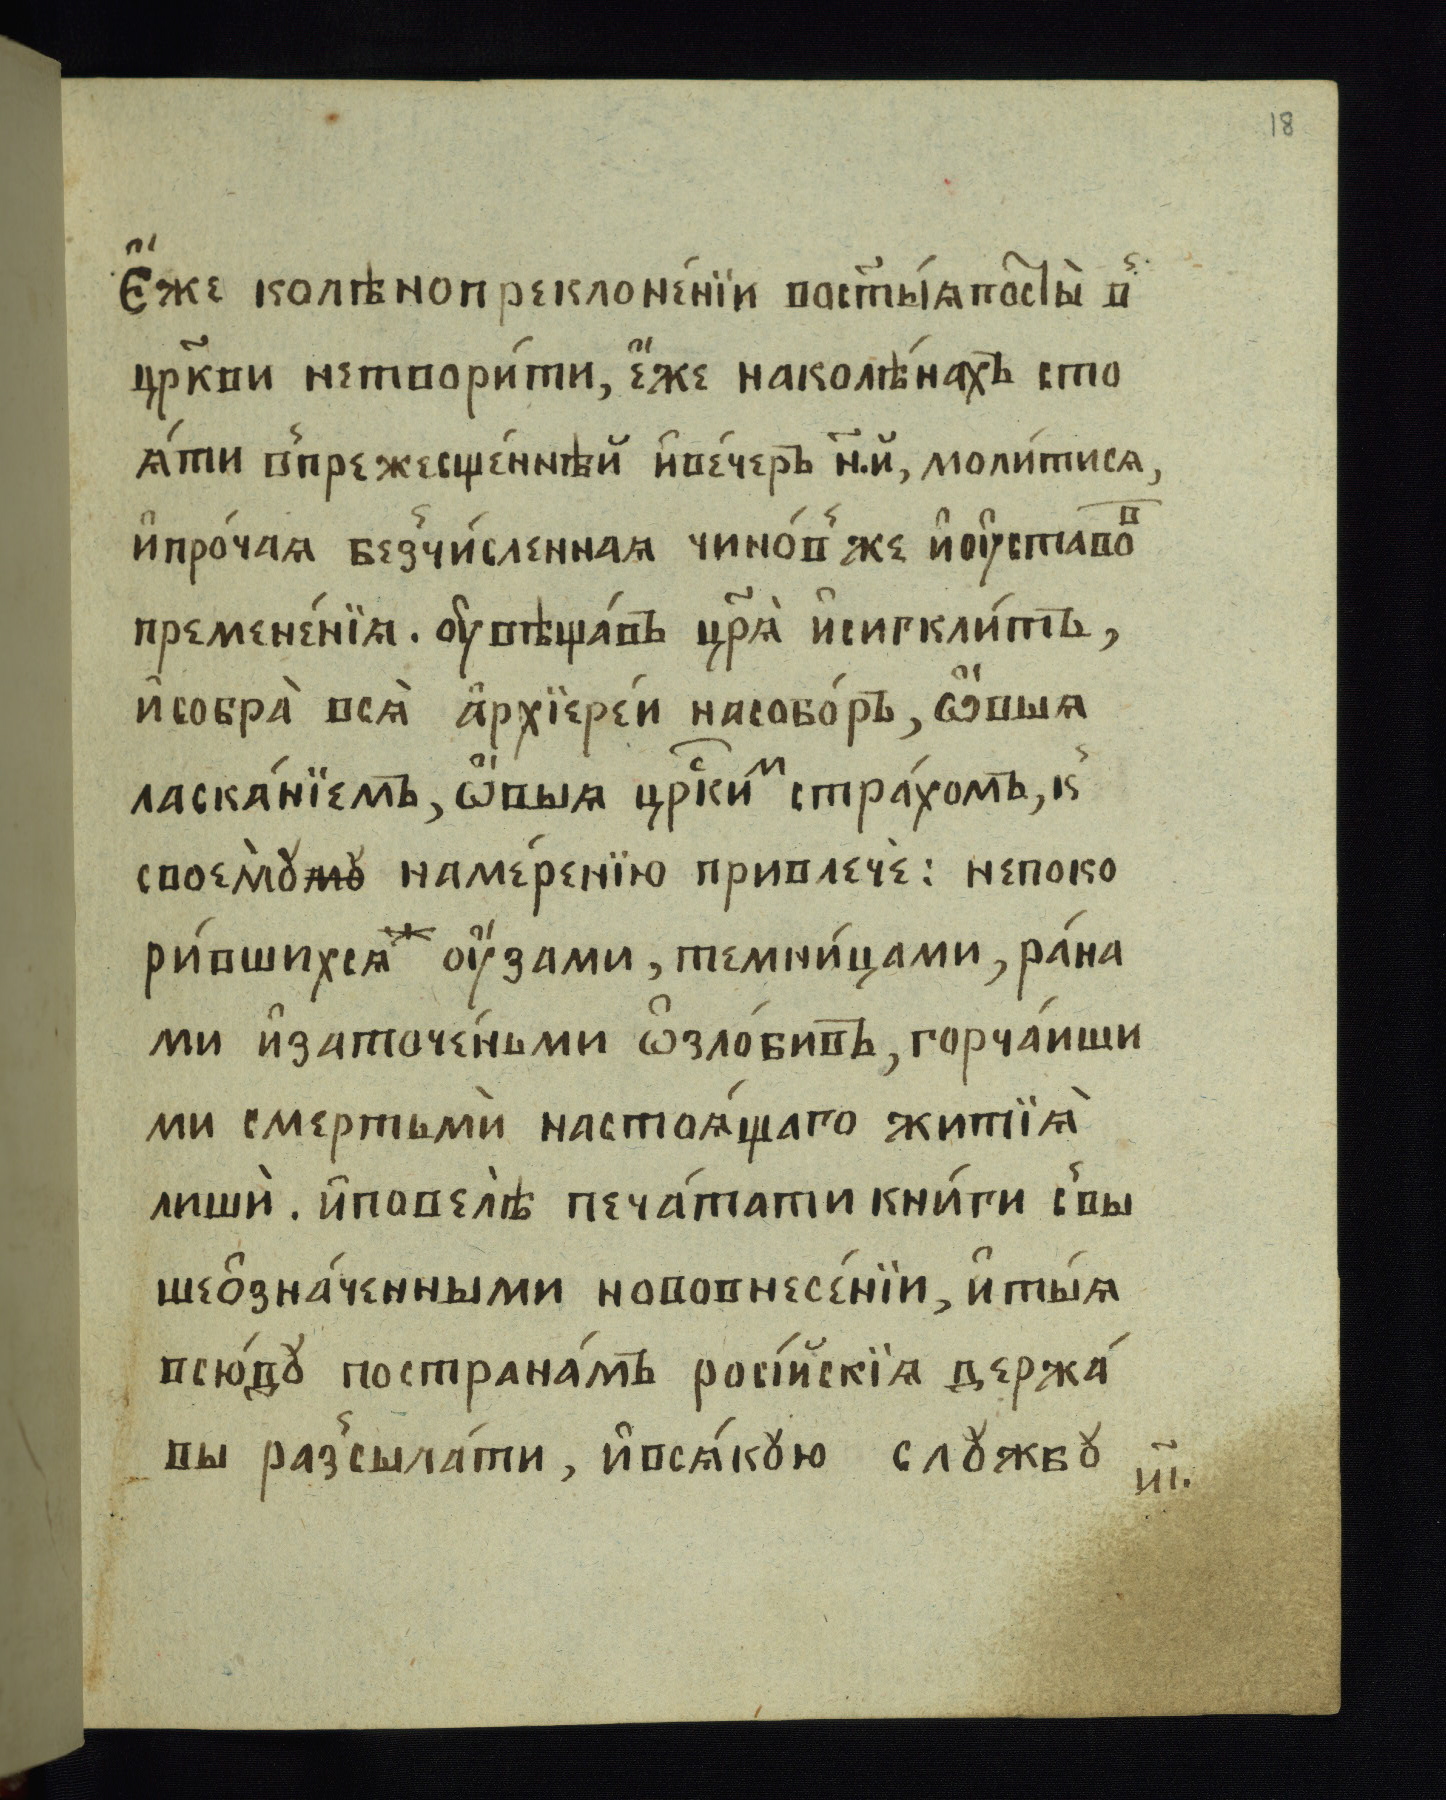 18
Є҆́же колѣнопреклоне́нїи востⷭ҇ы́ѧпосⷭ҇ты̀ в̾
цр҃кви нетвори́ти, є҆́же наколѣ́нахъ сто
ѧ́ти в̾прежесще́ннѣй и҆ве́черъ н҃.й, моли́тисѧ,
и҆про́чаѧ без̾чи́сленнаѧ чино́в̾ же и҆оу҆ставоⷡ҇
премене́нїѧ. оу҆вѣща́въ цр҃ѧ̀ и҆сигкли́тъ,
и҆собра̀ всѧ̀ а҆рхїере́и насобо́ръ, ѡ҆́выѧ
ласка́нїемъ, ѡ҆́выѧ црⷭ҇ки́ⷨ стра́хомъ, к̾
своемꙋ̀ наме́ренїю привлечѐ: непоко
ри́вшихсѧ оу҆́зами, темни́цами, ра́на
ми и҆заточе́ньми ѡ҆зло́бивъ, горча́иши
ми смертьмѝ настоѧ́щаго житїѧ̀
лишѝ. и҆повелѣ̀ печа́тати кни́ги с̾вы
шео҆зна́ченными нововнесе́нїи, и҆ты́ѧ
всю́дꙋ постранамъ росі́йскїѧ держа́
вы раз̾сыла́ти, и҆всѧ́кꙋю слꙋжбꙋ
и҃і.